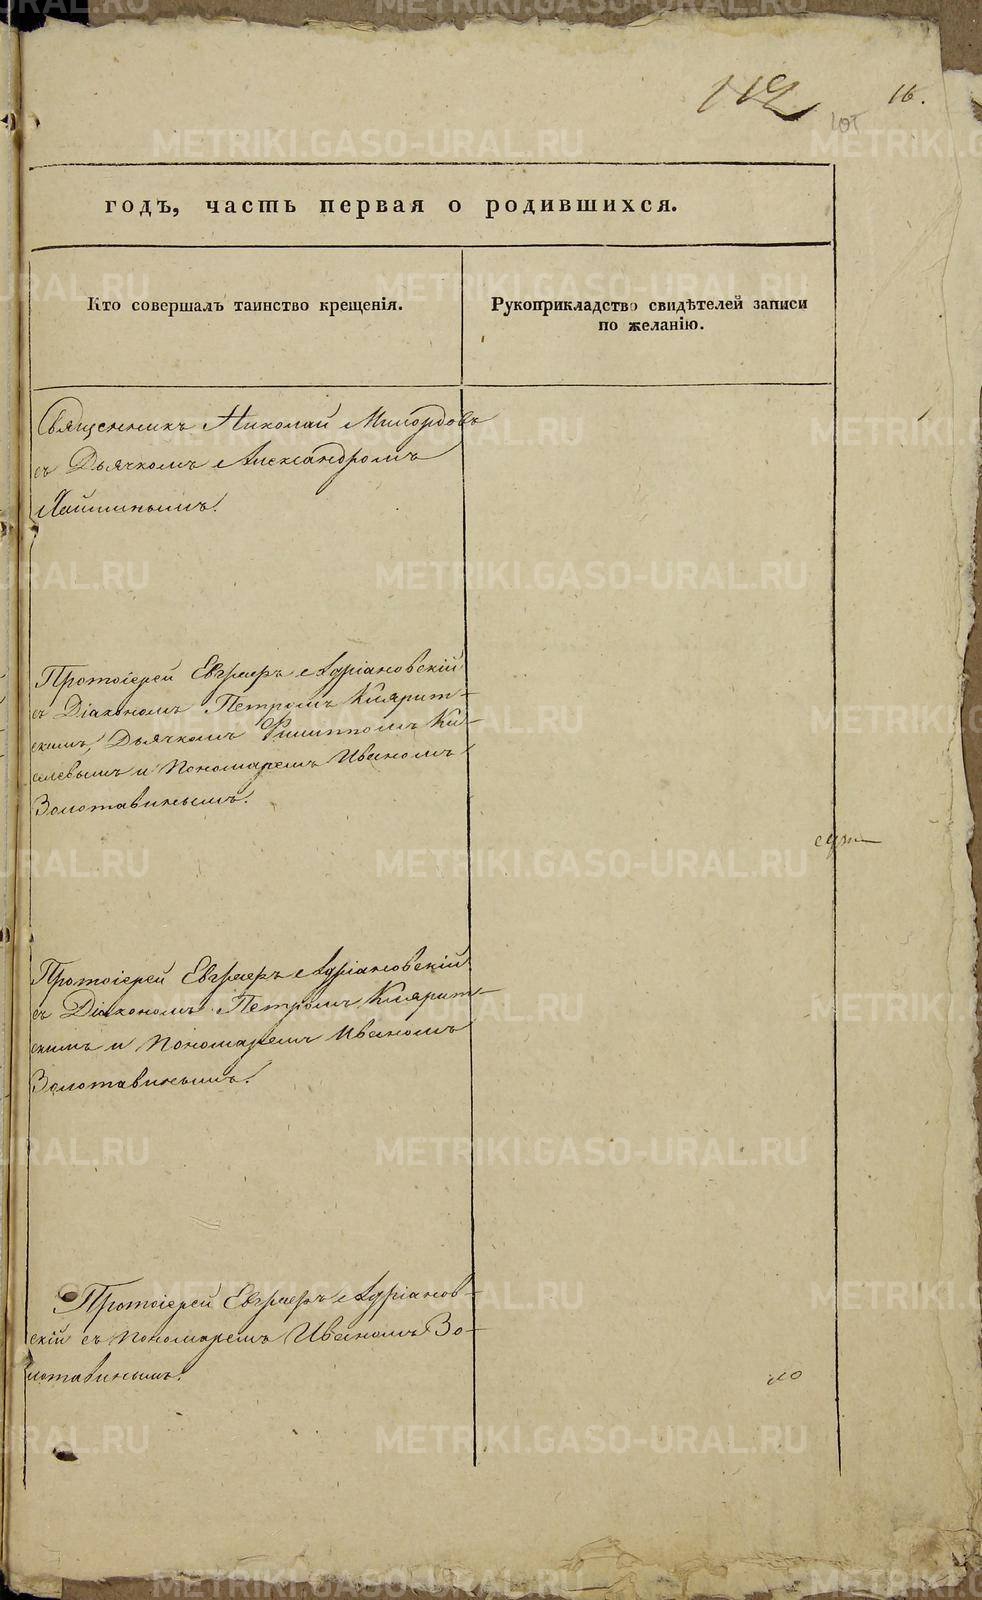 112
16.
107
годъ, часть первая о родившихся.
Кто совершалъ таинство крещенія.
Рукоприкладство свидѣтелей записи
по желанію.
Священникъ Николай Милордовъ
съ Дьячкомъ Александромъ
Протоіерей Евграфъ Адріановскій
съ Діакономъ Петромъ Кларит-
скимъ, Дьячкомъ Филиппомъ Ки-
селевымъ и Пономаремъ Иваномъ
Золотавинымъ.
Протоіерей Евграфъ Адріановскій
съ Діакономъ Петромъ Кларит-
скимъ и Пономаремъ Иваномъ
Золотавинымъ.
Протоіерей Евграфъ Адріанов-
скій съ Пономаремъ Иваномъ Зо-
лотавинымъ.
METRIKI.GASO-URAL.RU